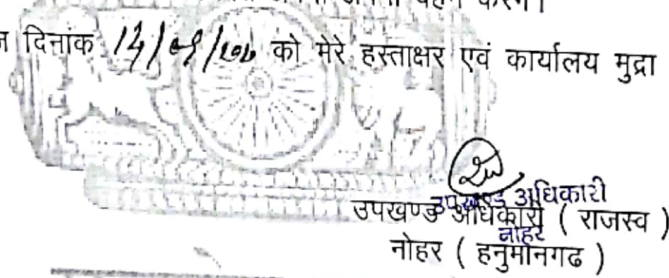 दिनांक 14/09/ को मेरे हस्ताक्षर एवं कार्यालय मुद्रा
उपखण्ड अधिकारी
उपखण्ड अधिकारी ( राजस्व )
नोहर
नोहर ( हनुमानगढ )